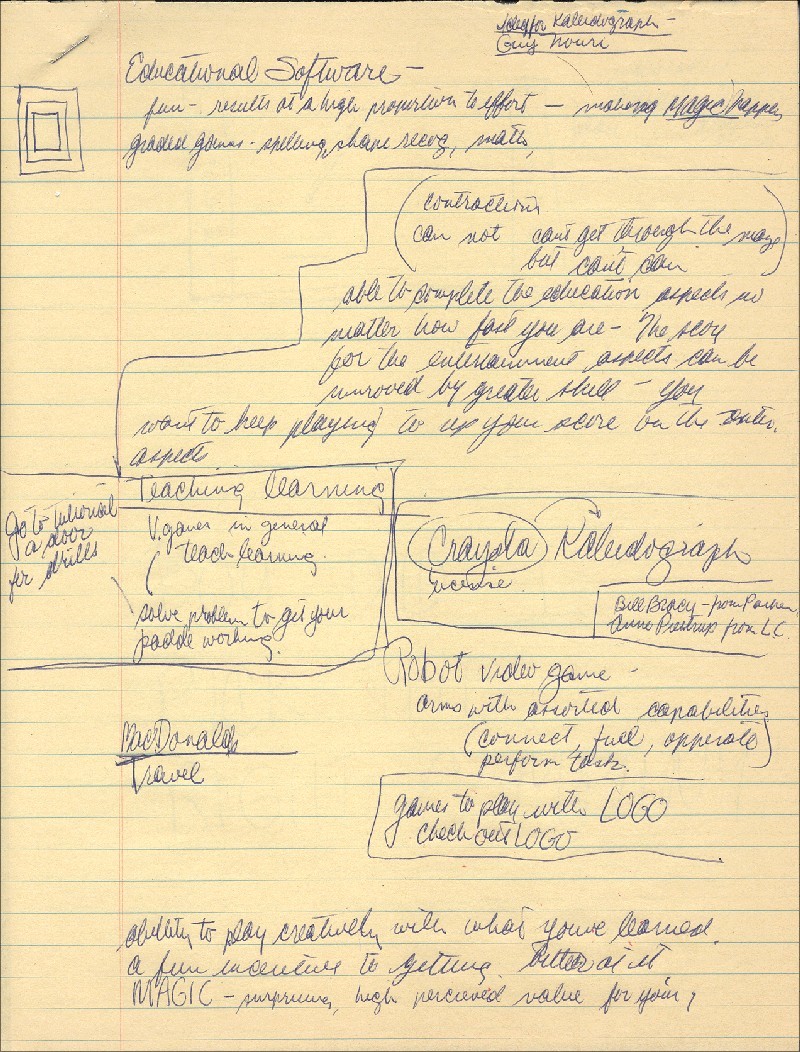 for Kaleidograph –
Guy Nouri
Educational Software –
fun – results at a high proportion to effort – making Magic happen
graded games – spelling, shape recog, math,
contractions
can not can't get through the maze
but can't can
able to complete the education aspects no
matter how fast you are – The score
for the entertainment aspects can be
improved by greater skill – you
want to keep playing to up your score on the enter.
aspects
Teaching learning
Go to tutorial
a door
for drills
V. games in general
teach learning.
solve problem to get your
paddle working.
Crayola Kaleidograph
license
Bill Bracy – from Parker
Anne from L.C.
Robot video game –
arms with assorted capabilities
(connect, fuel, opperate
perform task.)
MacDonalds
Travel
games to play with LOGO
check out LOGO
ability to play creatively with what youve learned.
a fun incentive to getting better at it
MAGIC – surprising, high percieved value for your,